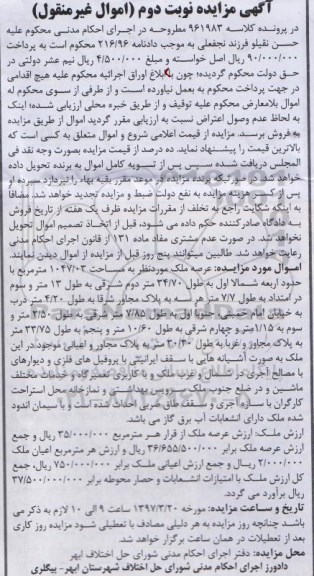 آگهی مزایده نوبت دوم (اموال غیرمنقول)
در پرونده کلاسه ۹۶۱۹۸۳ مطروحه در اجرای احکام مدنی محکوم علیه
حسن نقیلو فرزند نجفعلی به موجب دادنامه ۲۱۶/۹۶ محکوم است به پرداخت
۹۰/۰۰۰/۰۰۰ ریال اصل خواسته و مبلغ ۴/۵۰۰/۰۰۰ ریال نیم عشر دولتی در
حق دولت محکوم گردیده؛ چون با ابلاغ اوراق اجرائیه محکوم علیه هیچ اقدامی
در جهت پرداخت محکوم به بعمل نیاورده است و از طرفی از سوی محکوم له
اموال بلامعارض محکوم علیه توقیف و از طریق خبره محلی ارزیابی شده؛ اینک
به لحاظ عدم وصول اعتراض نسبت به ارزیابی مقرر گردید اموال از طریق مزایده
به فروش برسد. مزایده از قیمت اعلامی شروع و اموال متعلق به کسی است که
بالاترین قیمت را پیشنهاد نماید. ده درصد از قیمت مزایده بصورت وجه نقد فی
المجلس دریافت شده سپس پس از تسویه کامل اموال به برنده تحویل داده
خواهد شد. در صورتیکه برنده مزایده در موعد مقرر بقیه بهاء را نپردازد سپرده او
پس از کسر هزینه مزایده به نفع دولت ضبط و مزایده تجدید خواهد شد. مضافا
به اینکه شکایت راجع به تخلف از مقررات مزایده ظرف یک هفته از تاریخ فروش
به دادگاه صادرکننده حکم داده می شود، قبل از اتخاذ تصمیم اموال تحویل
نخواهد شد. در صورت عدم مشتری مفاد ماده ۱۳۱ از قانون اجرای احکام مدنی
رعایت خواهد شد. طالبین میتوانند پنج روز قبل از مزایده از اموال دیدن نمایند.
اموال مورد مزایده: عرصه ملک موردنظر به مساحت ۱۰۴۷/۰۳ مترمربع با
حدود اربعه شمالا اول به طول ۳۴/۷۰ متر دوم شرقی به طول ۱۳ متر و سوم
در امتداد به طول ۷/۷ متر هر سه به پلاک مجاور شرقا به طول ۴/۲۰ متر درب
به خیابان امام خمینی جنوبا اول به طول ۷/۸۵ متر شرقی به طول ۳/۵ متر و
سوم به ۱/۱۵ متر و چهارم شرقی به طول ۱۰/۶۰ متر و پنجم به طول ۳۳/۷۵ متر
به پلاک مجاور و غربا به طول ۳۰/۴۰ متر به پلاک مجاور و اعیانی موجود در این
ملک به صورت آشیانه هایی با سقف ایرانیتی با پروفیل های فلزی و دیوارهای
با مصالح آجری در شمال و غرب ملک و با کاربری تعمیرگاه و خدمات مختلف
ماشین و در ضلع جنوب ملک سرویس بهداشتی و نمازخانه محل استراحت
کارگران با سازه آجری و سقف طاق ضربی احداث شده است و با سیمان اندود
شده ملک دارای انشعابات آب برق گاز می باشد.
ارزش ملک: ارزش عرصه ملک از قرار هر مترمربع ۳۵/۰۰۰/۰۰۰ ریال و جمع
ارزش عرصه ملک برابر ۳۶/۶۵۵/۵۰۰/۰۰۰ ریال و ارزش هر مترمربع اعیان ملک
۲/۰۰۰/۰۰۰ ریال و جمع ارزش اعیانی ملک برابر ۷۵۰/۰۰۰/۰۰۰ ریال، جمع
کل ارزش ملک با امتیازات انشعابات و حصار محوطه برابر ۳۷/۵۰۰/۰۰۰/۰۰۰
ریال برآورد می گردد.
تاریخ و ساعت مزایده: مورخه ۱۳۹۷/۳/۲۰ ساعت ۹ الی ۱۰ لازم به ذکر می
باشد چنانچه روز مزایده به هر دلیلی مصادف با تعطیلی شود مزایده روز کاری
بعد از تعطیلات در همان ساعت برگزار خواهد شد.
محل مزایده: دفتر اجرای احکام مدنی شورای حل اختلاف ابهر
دادورز اجرای احکام مدنی شورای حل اختلاف شهرستان ابهر- بیگلری